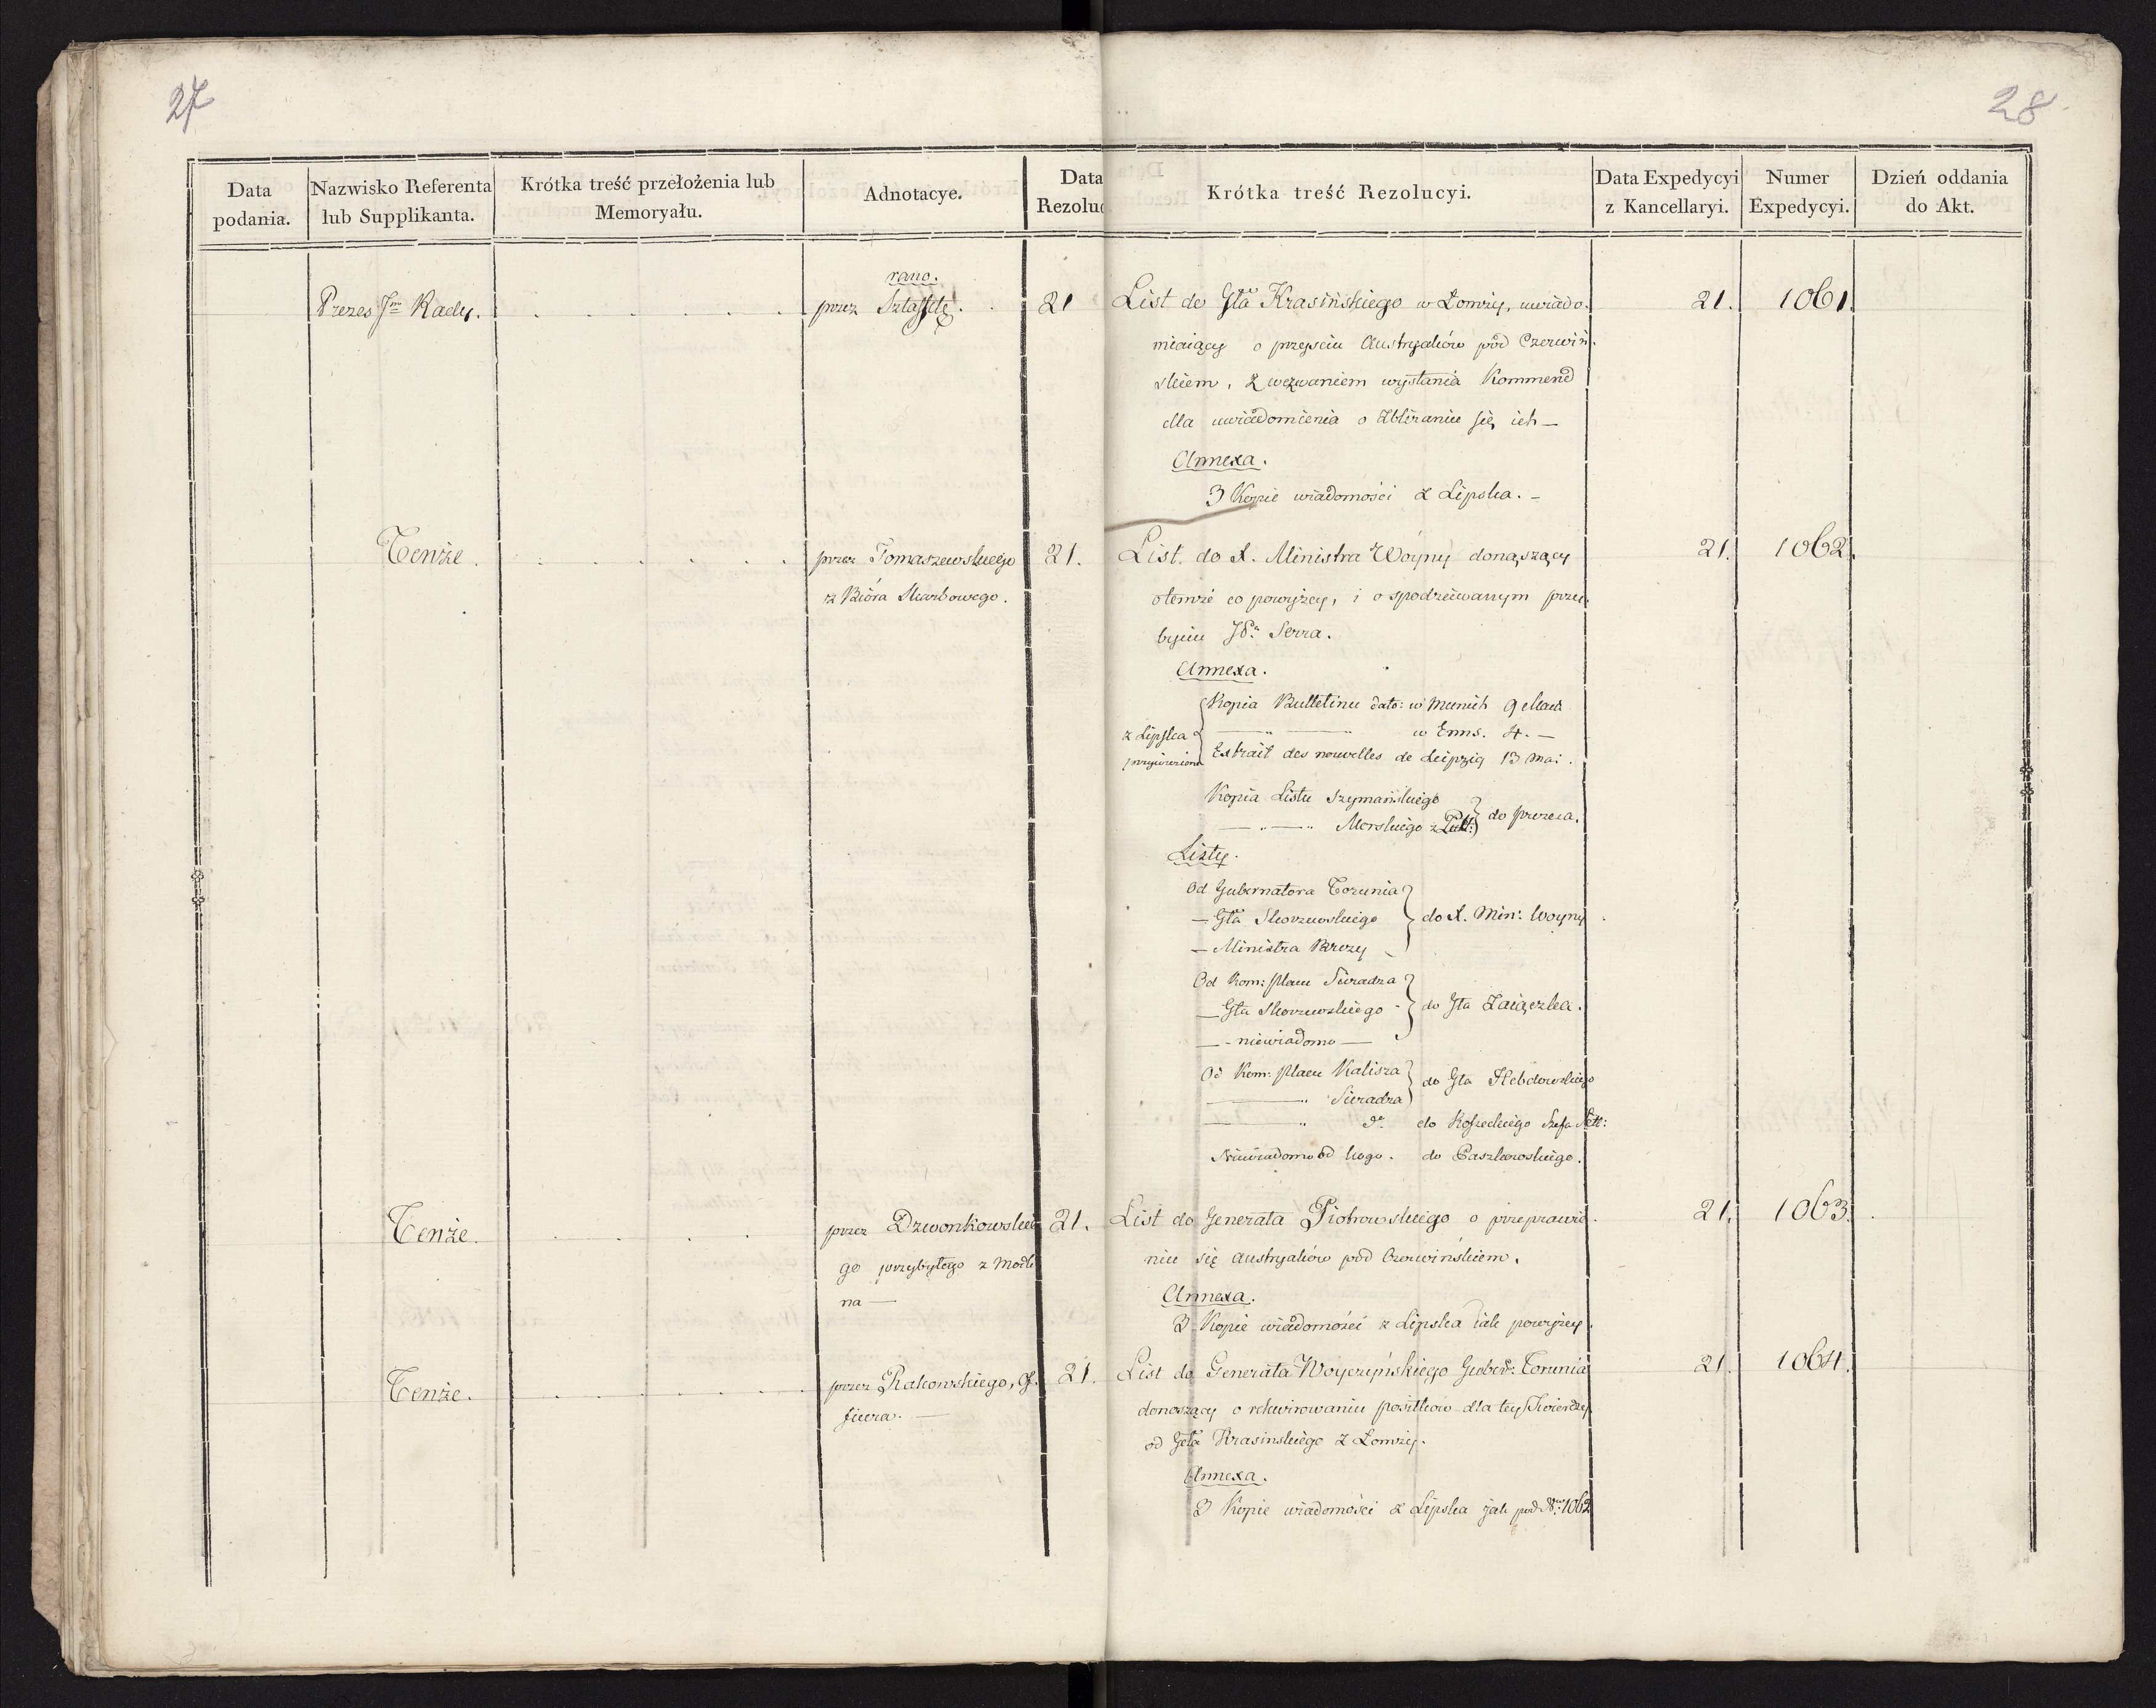 27
28
Data podania.
Nazwisko Referenta lub Supplikanta.
Krótka treść przełożenia lub Memoryału.
Adnotacye.
Data Rezoluc
Krótka treść Rezolucyi.
Data Expedycyi z Kancellaryi.
Numer Expedycyi.
Dzień oddania do Akt.
rano.
Prezes Rady. . . . . . . przez Sztaffetę. 21 List do Gła Krasińskiego w Łomży, uwiado- 21. 1061.
miaiący o przejsciu Austryaków pod Czerwiń-
skiem, z wezwaniem wysłania Kommend
dla uwiadomienia o zbliżaniu się ich —
Annexa.
3 Kopie wiadomości z Lipska. —
Tenże. . . . . . . przez Tomaszewskiego 21. List do X. Ministra Woyny donąszący 21. 1062.
z Bióra Skarbowego. otemże co powyżey, i o spodziewanym przy-
byciu Serra.
Annexa.
Kopia Bulletinu dato: w Munich 9
z Lipska — " — " w Enns. 4. —
przywiezione Extrait des nouvelles de Leipzig 13 mai.
Kopia Listu Szymańskiego
— " — " Morskiego z do prezesa.
Listy.
Od Gubernatora Torunia
— Gła Skorzewskiego do X. Min: Woyny
— Ministra Brezy
Od Kom: placu Sieradza
— Gła Skorzewskiego do Gła Zaiączka.
— - niewiadomo —
Od Kom: placu Kalisza do Gła Hebdowskiego
— " Sieradza
— " do do Kosseckiego Szefa
Niewiadomo od kogo. do Paszkowskiego.
Tenże. . . . . przez Dzwonkowskie 21. List do Generała Piotrowskiego o przeprawie- 21. 1063.
go przybyłego z Modli niu się Austryaków pod Czerwińskiem.
na —
Annexa.
3 Kopie wiadomości z Lipska iak powyżey.
Tenże. . . . . . . przez Rakowskiego, Of- 21. List do Generała Woyczyńskiego Guber: Torunia 21. 1064.
ficera. — donoszący o rekwirowaniu posiłków dla tey Twierdzy
od Gęła Krasinskiego z Łomży.
Annexa.
3 Kopie wiadomości z Lipska jak pod Nrm 1062